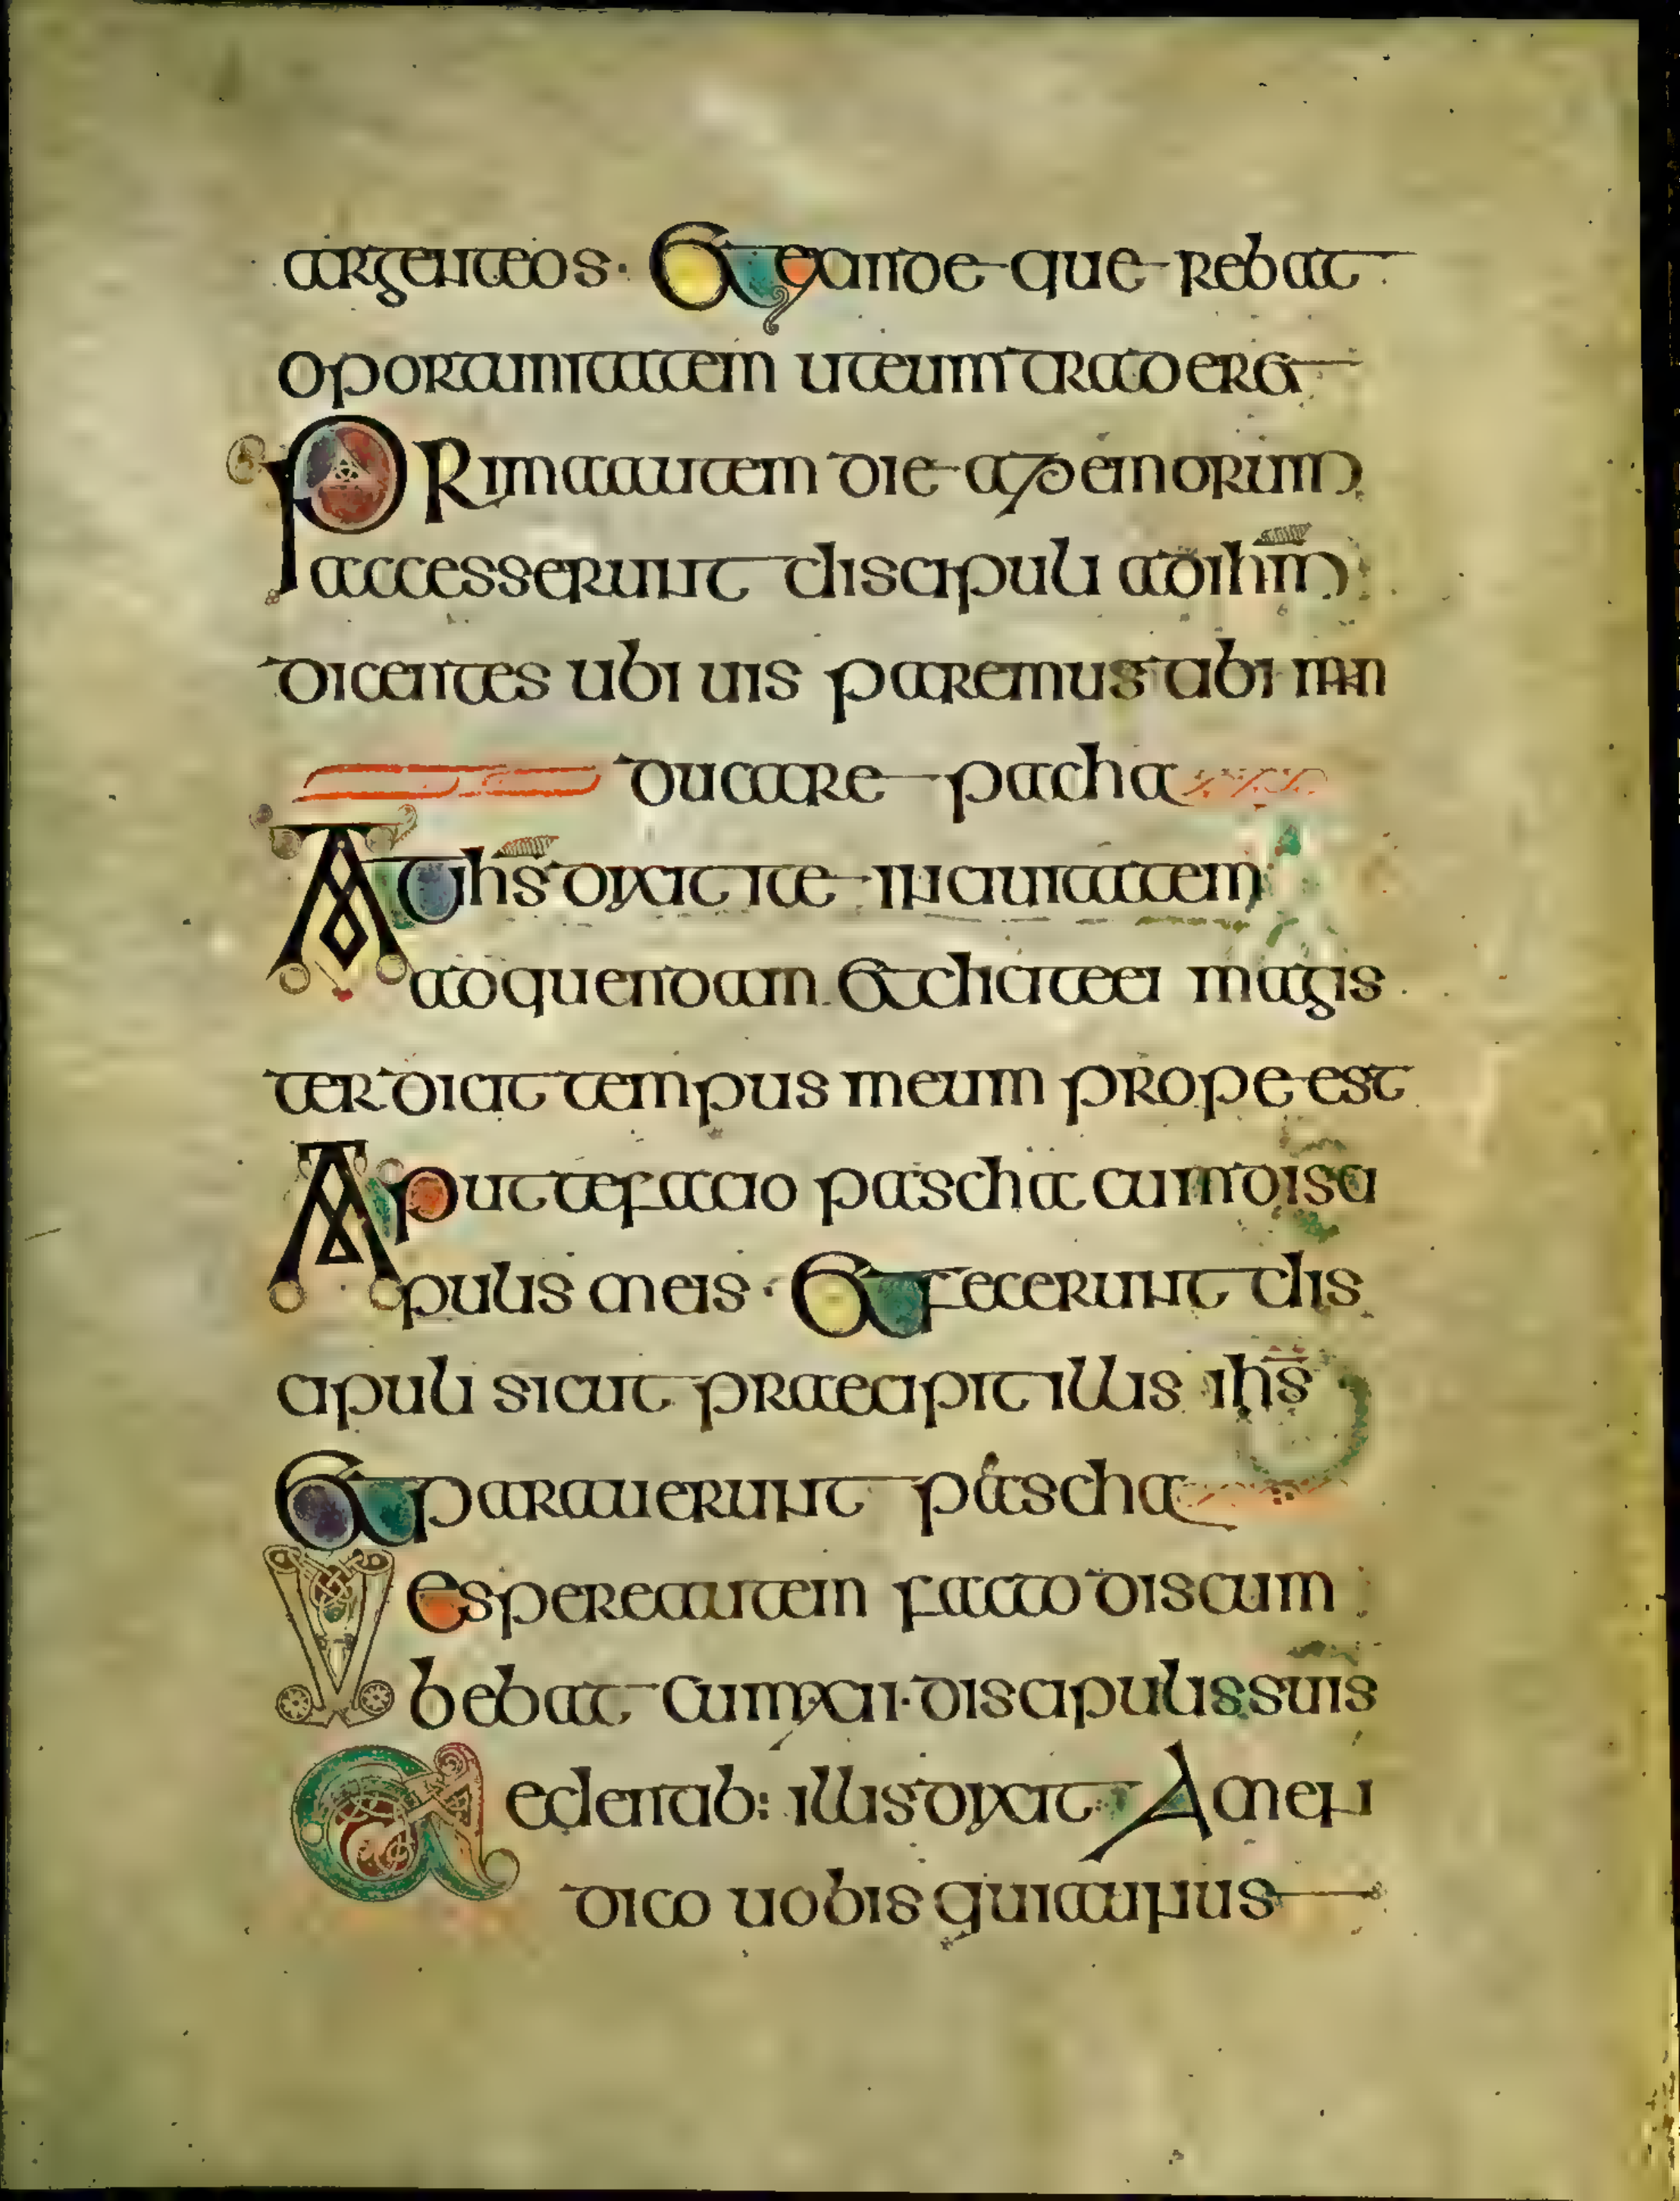 argenteos · Et exande que rebat
oportunitatem ut eum traderet
Prima autem die azemorum
accesserunt discipuli ad ihm
dicentes ubi uis paremus tibi man
ducare pacha
At ihs dixit ite in ciuitatem
ad quendam · Et dicite ei magis
ter dicit tempus meum prope est
Aput te facio pascha cum disci
pulis meis · Et fecerunt dis
cipuli sicut praecipit illis ihs
Et parauerunt pascha
Vespere autem facto discum
bebat cum xii · discipulis suis
Et edentib: illis dixit Amen
dico uobis qui aunus